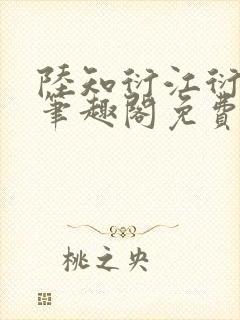 陸知衍江衍
筆趣閣免費
桃之央